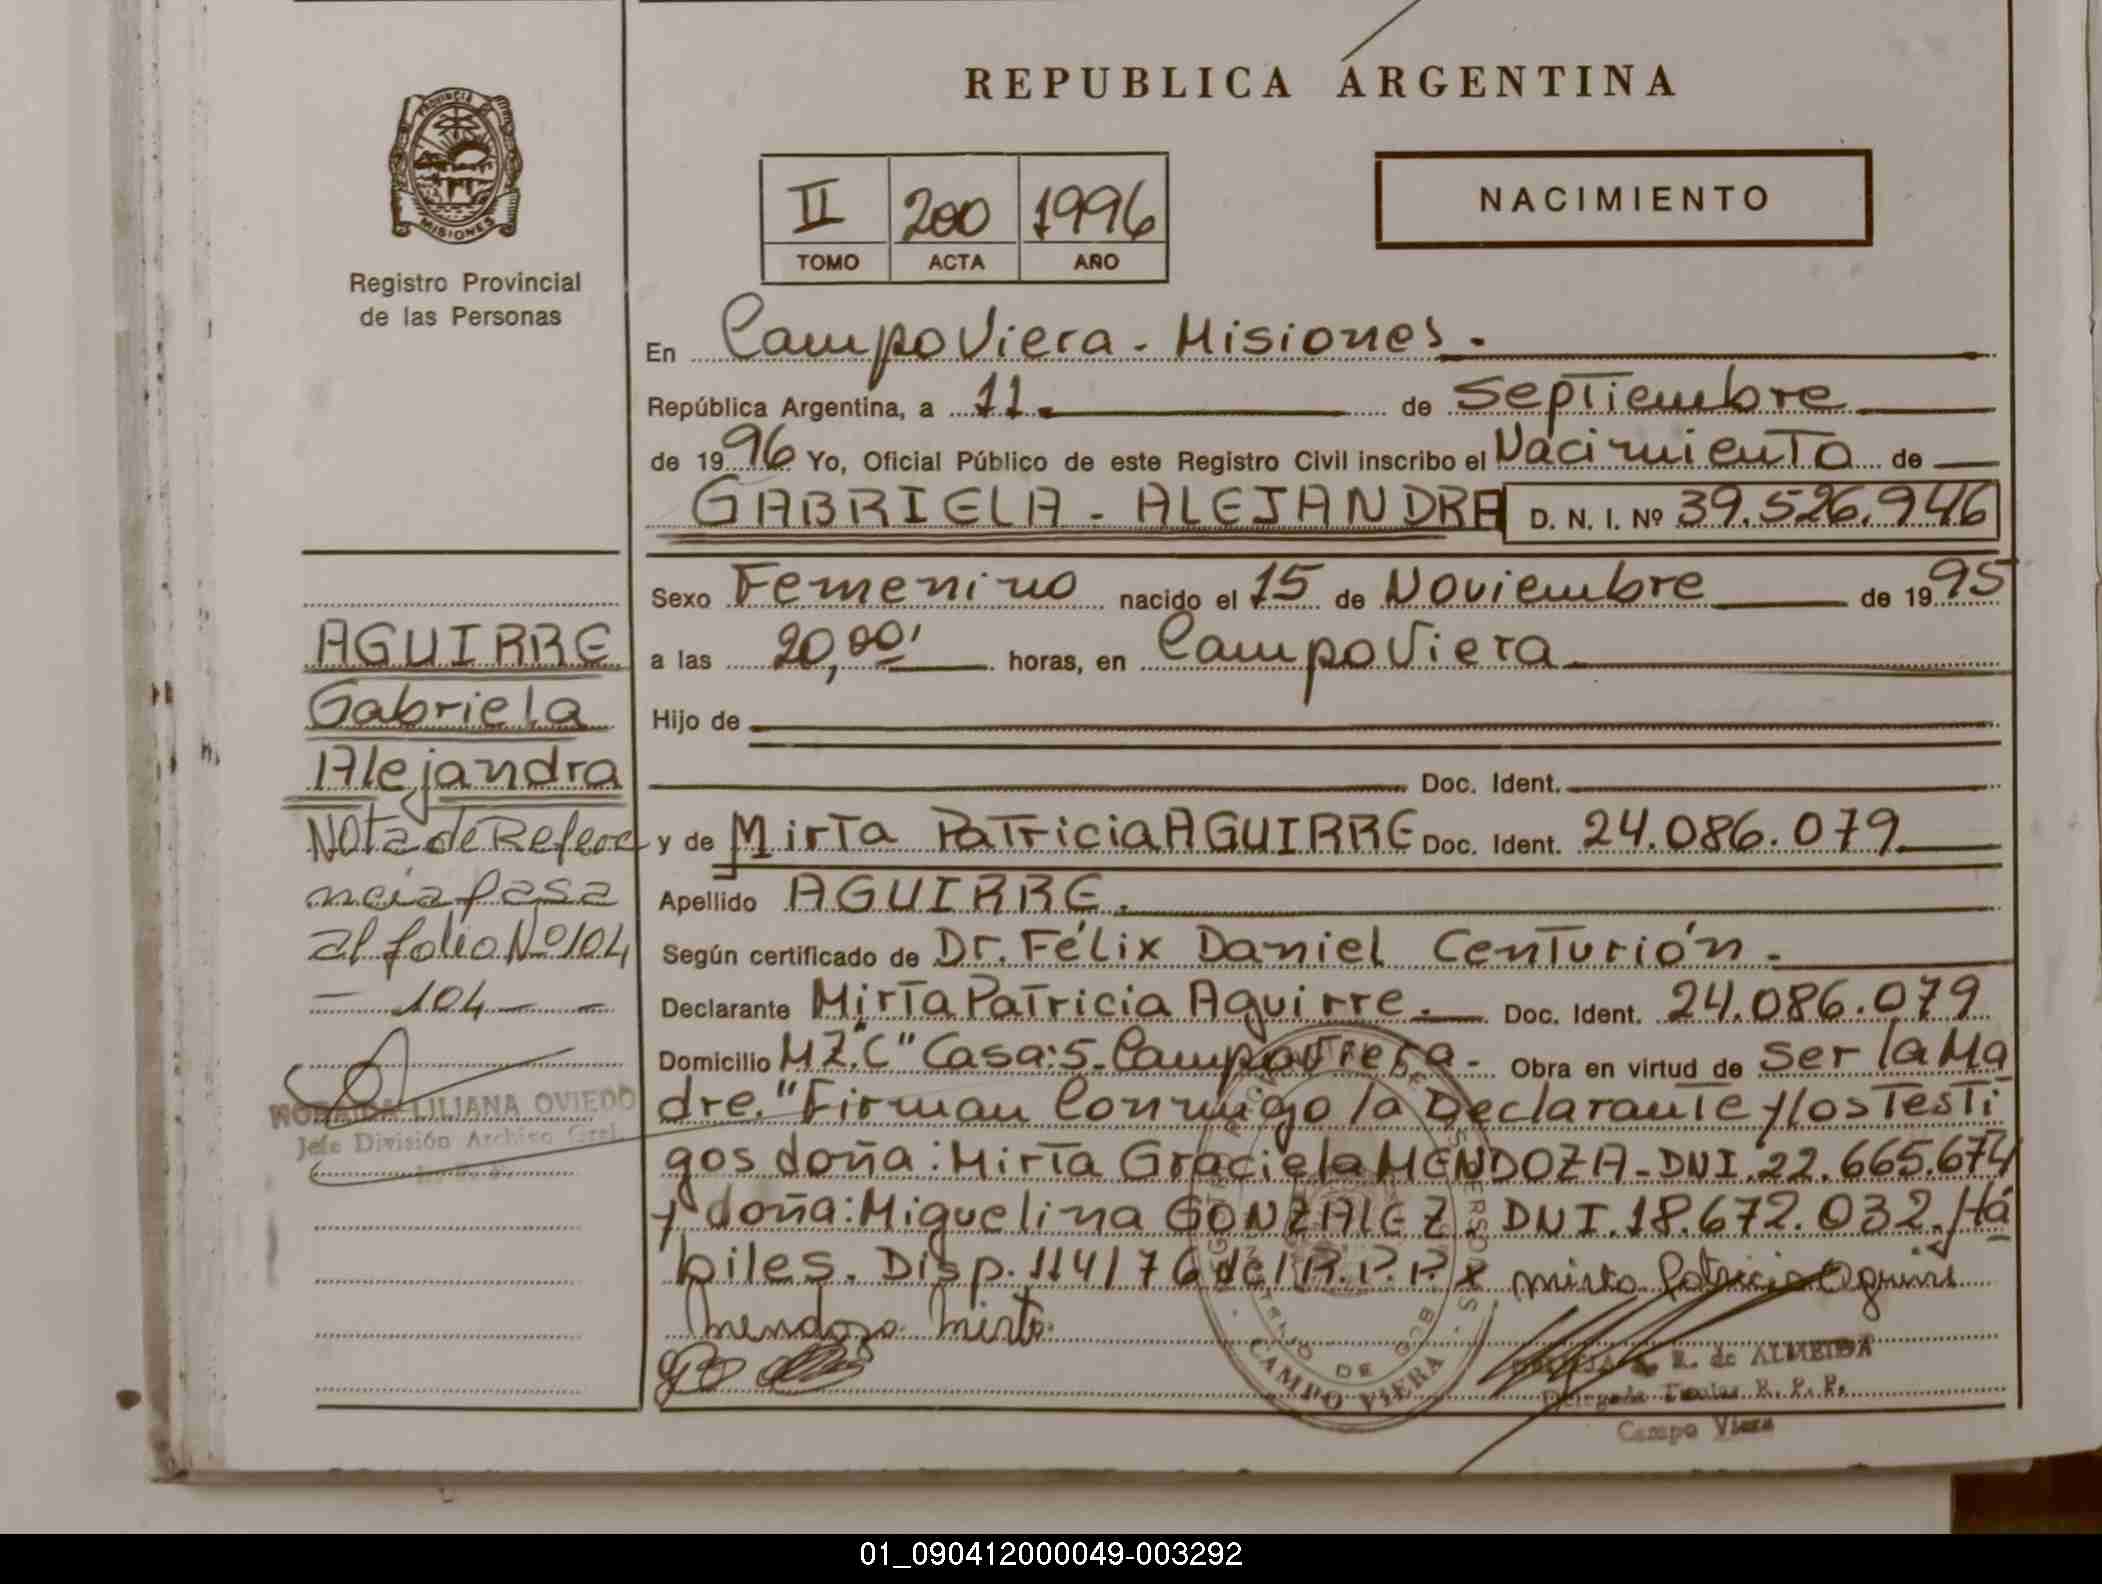 REPUBLICA ARGENTINA
PROVINCIA
MISIONES
Registro Provincial
de las Personas
II 200 1996
TOMO ACTA AÑO
NACIMIENTO
En Campo Viera - Misiones.
República Argentina, a 11 de Septiembre
de 1996 Yo, Oficial Público de este Registro Civil inscribo el Nacimiento de
GABRIELA - ALEJANDRA D. N. I. Nº 39.526.946
Sexo Femenino nacido el 15 de Noviembre de 1995
a las 20,00' horas, en Campo Viera
Hijo de
Doc. Ident.
y de Mirta Patricia AGUIRRE Doc. Ident. 24.086.079
Apellido AGUIRRE.
Según certificado de Dr. Félix Daniel Centurión.
Declarante Mirta Patricia Aguirre. Doc. Ident. 24.086.079
Domicilio MZ."C" Casa:5. Campo Viera - Obra en virtud de Ser la Ma
dre. "Firman Conmigo la Declarante y los Testi
gos doña: Mirta Graciela MENDOZA - DNI. 22.665.674
y doña: Miguelina GONZALEZ. DNI. 18.672.032. Há
biles. Disp. 114/76 del R.P.P. x Mirta Patricia Aguirre
Mendoza Mirta
R. de ALMEIDA
Delegada Titular R. P. P.
Campo Viera
CAMPO VIERA
AGUIRRE
Gabriela
Alejandra
Nota de Refere
ncia pasa
al folio Nº 104
- 104 -
LILIANA OVIEDO
Jefe División Archivo Gral.
01_090412000049-003292